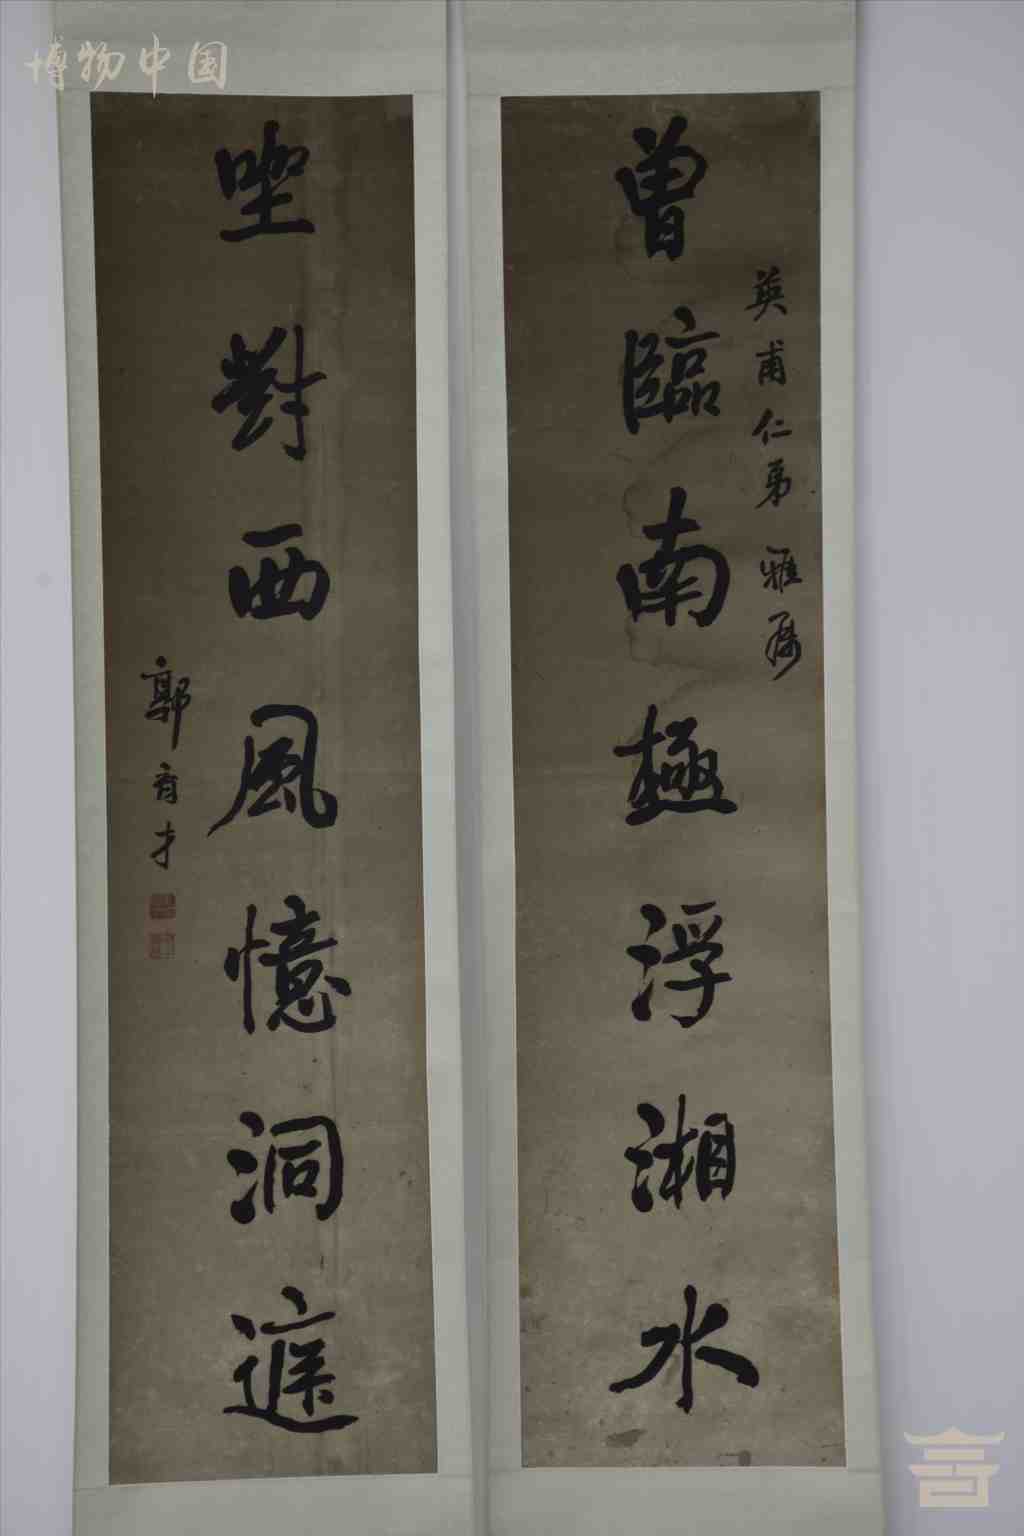 博物中国
曾臨南極浮湘水
英甫仁弟 雅屬
坐對西風憶洞庭
郭育才